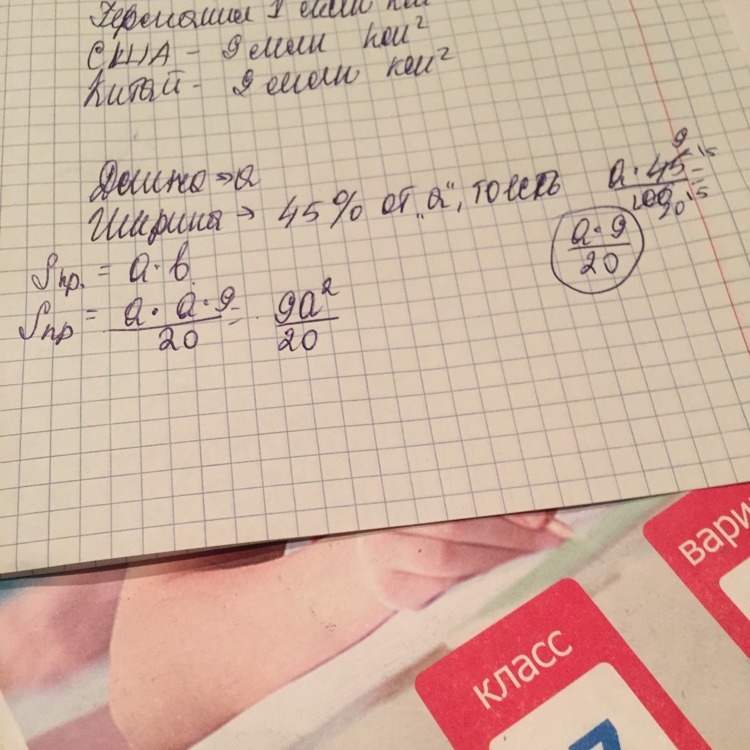 Германия 1 млн км²
США - 9 млн км²
Китай - 9 млн км²
Длина → a
Ширина → 45% от „a", то есть a · 45 / 100 =
9 :5
20 :5
a · 9 / 20
Sпр. = a · b
Sпр = a · a · 9 / 20 = 9a² / 20
вари
класс
7